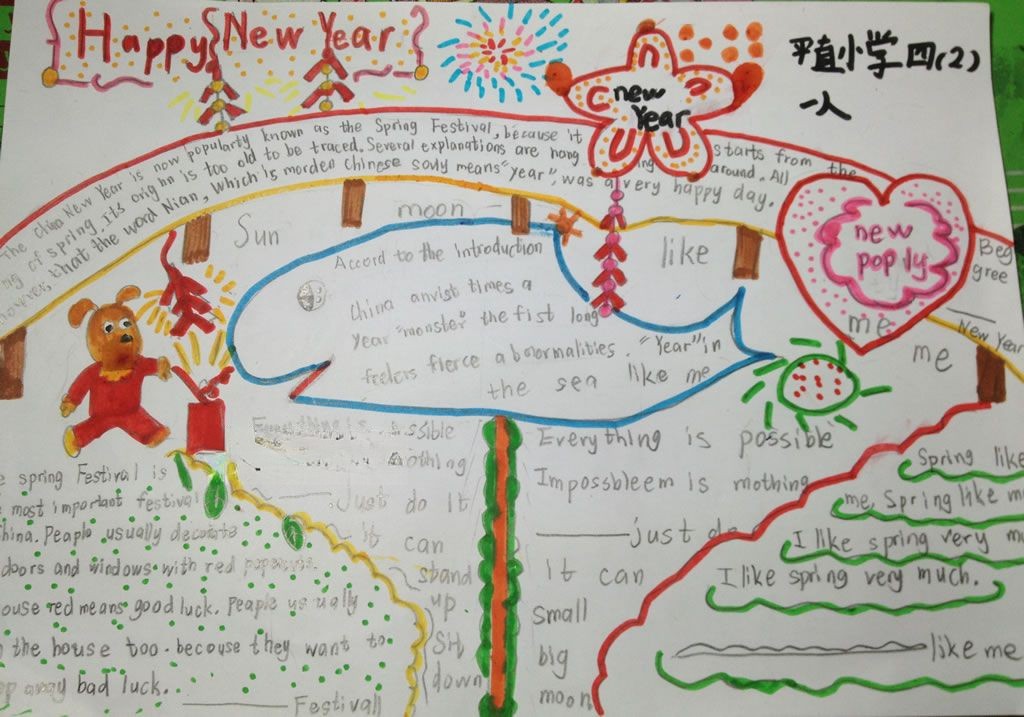 Happy New Year
new
Year
平直小学四(2)
一人
The China New Year is now popularty known as the Spring Festival, because it starts from the
ng of spring. Its orighn is too old to be traced. Several explanations are hang around. All
however, that the word Nian, which is morden Chinese sody means "year", was a very happy day.
Sun
moon
like
me
me
new
poply
Beg
gree
New Year
Accord to the introduction
China anvist times a
Year "monster" the fist long
feelers fierce abnormalities. "Year" in
the sea like me
spring Festival is
most important festival
China. Peaple usually decotate
doors and windows with red
ouse red means good luck. Peaple usually
the house too. becouse they want to
away bad luck.
Festivall
ssible
nothing
Just do It
it can
stand
up
SH
down
Everything is possible
Impossbleem is mothing
just do
It can
small
big
moon
Spring like
me. Spring like me
I like spring very mu
I like spring very much.
like me